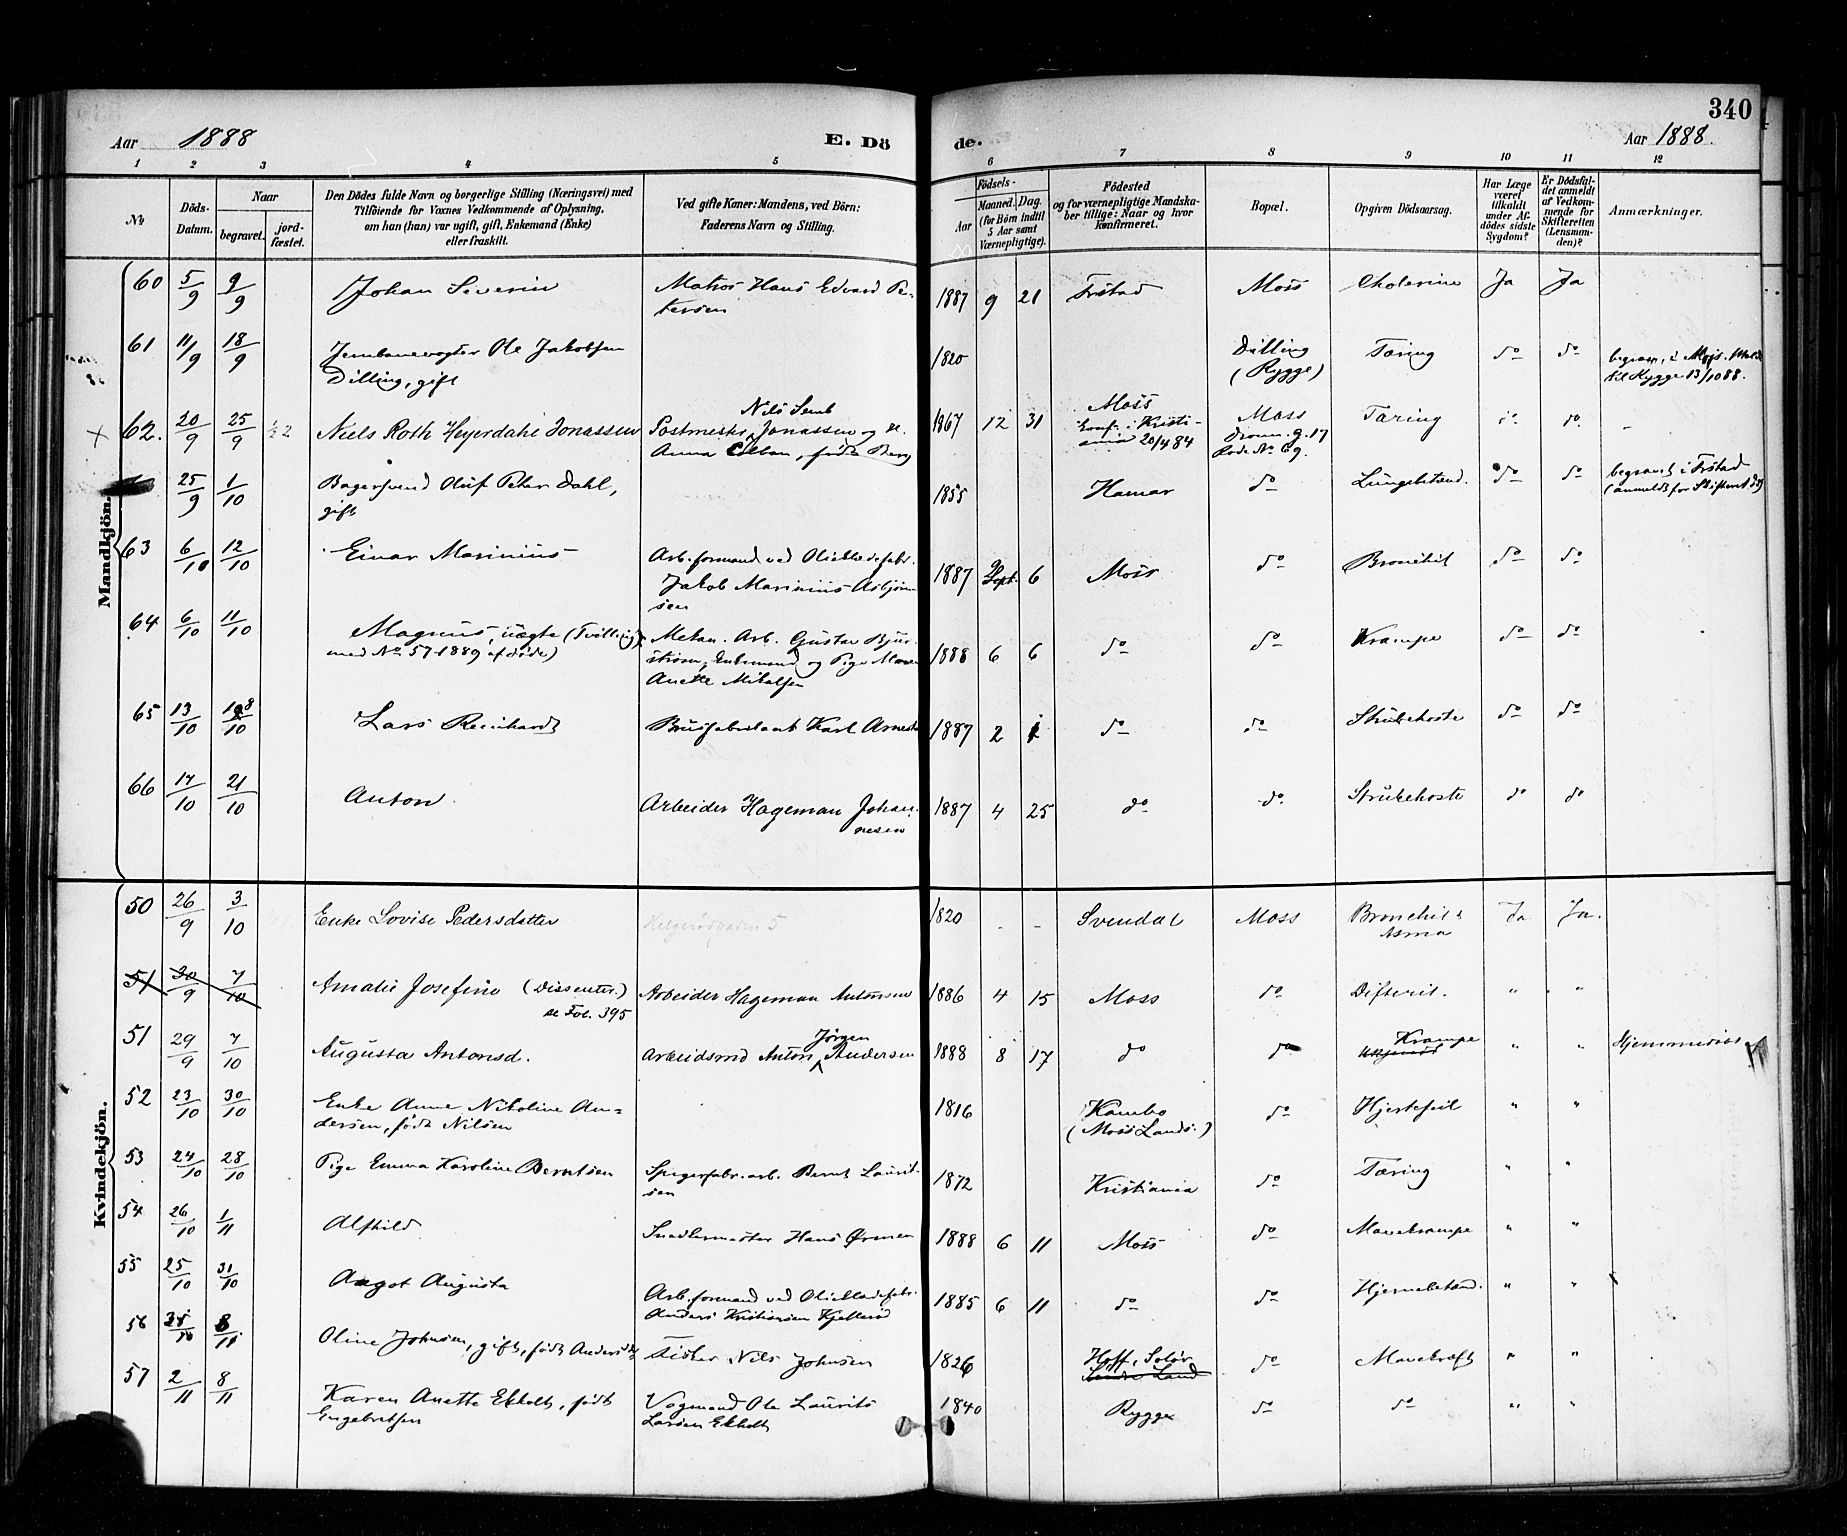 340
Aar 1888 E. Dö de. Aar 1888.
1 2 3 4 5 6 7 8 9 10 11 12
№ Döds-Datum. Naar begravet. jordfæstet. Den Dödes fulde Navn og borgerlige Stilling (Næringsvei) med Tilföiende for Voxnes Vedkommende af Oplysning, om han (hun) var ugift, gift, Enkemand (Enke) eller fraskilt. Ved gifte Koner: Mandens, ved Börn: Faderens Navn og Stilling. Födsels- Aar Maaned. Dag. (for Börn indtil 5 Aar samt Værnepligtige). Födested og for værnepligtige Mandskaber tillige: Naar og hvor Konfirmeret. Bopæl. Opgiven Dödsaarsag. Har Læge været tilkaldt under Afdödes sidste Sygdom? Er Dödsfaldet anmeldt af Vedkommende for Skifteretten (Lensmanden)? Anmærkninger.
Mandkjön.
60 5/9 9/9 Johan Severin Matros Hans Edvard Petersen 1887 9 21 Frstad Moss Cholerine Ja Ja
61 11/9 18/9 Jernbanevogter Ole Jakobsen Dilling, gift 1820 Dilling (Rygge) Tæring do do begrav. i Moss. til Rygge 13/10 88.
62. 20/9 25/9 Niels Roth Heyerdahl Jonassen Postmester Nils Semb Jonassen og Anna Elben, födt Berg 1867 12 31 Moss konf. i Kristiania 20/4 84 Moss Dronn. g. 17 Rode No 69. Tæring do do -
25/9 1/10 Bagersvend Oluf Peter Dahl, gift 1855 Hamar do Lungebetænd. do do begravet i Frstad (anmeldt for Skifteret do)
63 6/10 12/10 Einar Marinius Arb.formand ved Olieklædefabr. Jakob Marinius Asbjörnsen 1887 Sept. 6 Moss do Bronchit do do
64 6/10 11/10 Magnus, uægte (Tvilling med No 57-1889 af döde) Mekan. Arb. Gustav Bjurström, Enkemand og Pige Anette Mikalsen 1888 6 6 do do Krampe do do
65 13/10 18/10 Lars Reinhardt Brusfabrikant Karl 1887 2 1 do do Strubehoste do do
66 17/10 21/10 Anton. Arbeider Hageman Johannesen 1887 4 25 do do. Strubehoste do do
Kvindekjön.
50 26/9 3/10 Enke Lovise Pedersdatter 5 1820 - - Svendal Moss Bronchit & Asma Ja Ja.
51 30/9 7/10 Amalie Josefine (Dissenter.) se Fol. 395 Arbeider Hageman Antonsen 1886 4 15 Moss do Difterit. " "
51 29/9 7/10 Augusta Antonsd. Arbeidsmd Anton Jörgen Andersen 1888 8 17 do do Krampe ukjendt " " Hjemmedöbt
52 23/10 30/10 Enke Anne Nikoline Andersen, födt Nilsen 1816 Kambo (Moss Lands.) do Hjertefeil " "
53 24/10 28/10 Pige Emma Karoline Berntsen Spigerfabr.arb. Bernt Lauritsen 1872 Kristiania do Tæring " "
54 26/10 1/11 Alfhild Snedkermester Hans Örmen 1888 6 11 Moss do Mavekrampe " "
55 25/10 31/10 Aagot Augusta Arb.formand ved Oliekladefabr. Anders Kristiansen Kjellerød 1885 6 11 do do Hjernebetænd. " "
56 8/11 Oline Johnsen, gift, födt Andersd. Fisker Nils Johnsen 1826 Hoff, Solör Söndre Land do Mavekræft " "
57 2/11 8/11 Karen Anette Ekholt, födt Engebretsen Vognmand Ole Laurits Larsen Ekholt 1840 Rygge do do " "